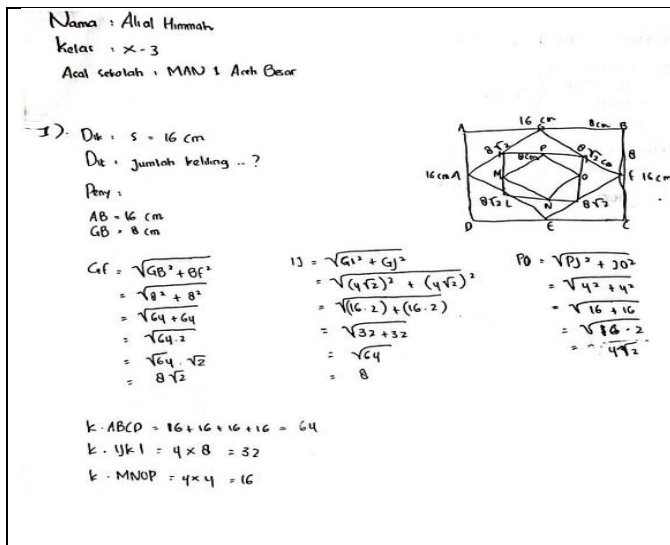 Nama : Alial Himmah
Kelas : X-3
Asal sekolah : MAN 1 Aceh Besar
1). Dik : s = 16 cm
Dit : jumlah keliling .. ?
Peny :
AB = 16 cm
GB = 8 cm
A 16 cm G 8cm B
8√2 P 8√2 cm 8
8cm
16cm A M O F 16 cm
8√2 L N 8√2
D E C
GF = √GB² + BF²
= √8² + 8²
= √64 + 64
= √64.2
= √64 . √2
= 8√2
IJ = √GI² + GJ²
= √(4√2)² + (4√2)²
= √(16.2) + (16.2)
= √32 + 32
= √64
= 8
PO = √PJ² + JO²
= √4² + 4²
= √16 + 16
= √16 . 2
= 4√2
K . ABCD = 16 + 16 + 16 + 16 = 64
K . IJKL = 4 x 8 = 32
K . MNOP = 4x4 = 16